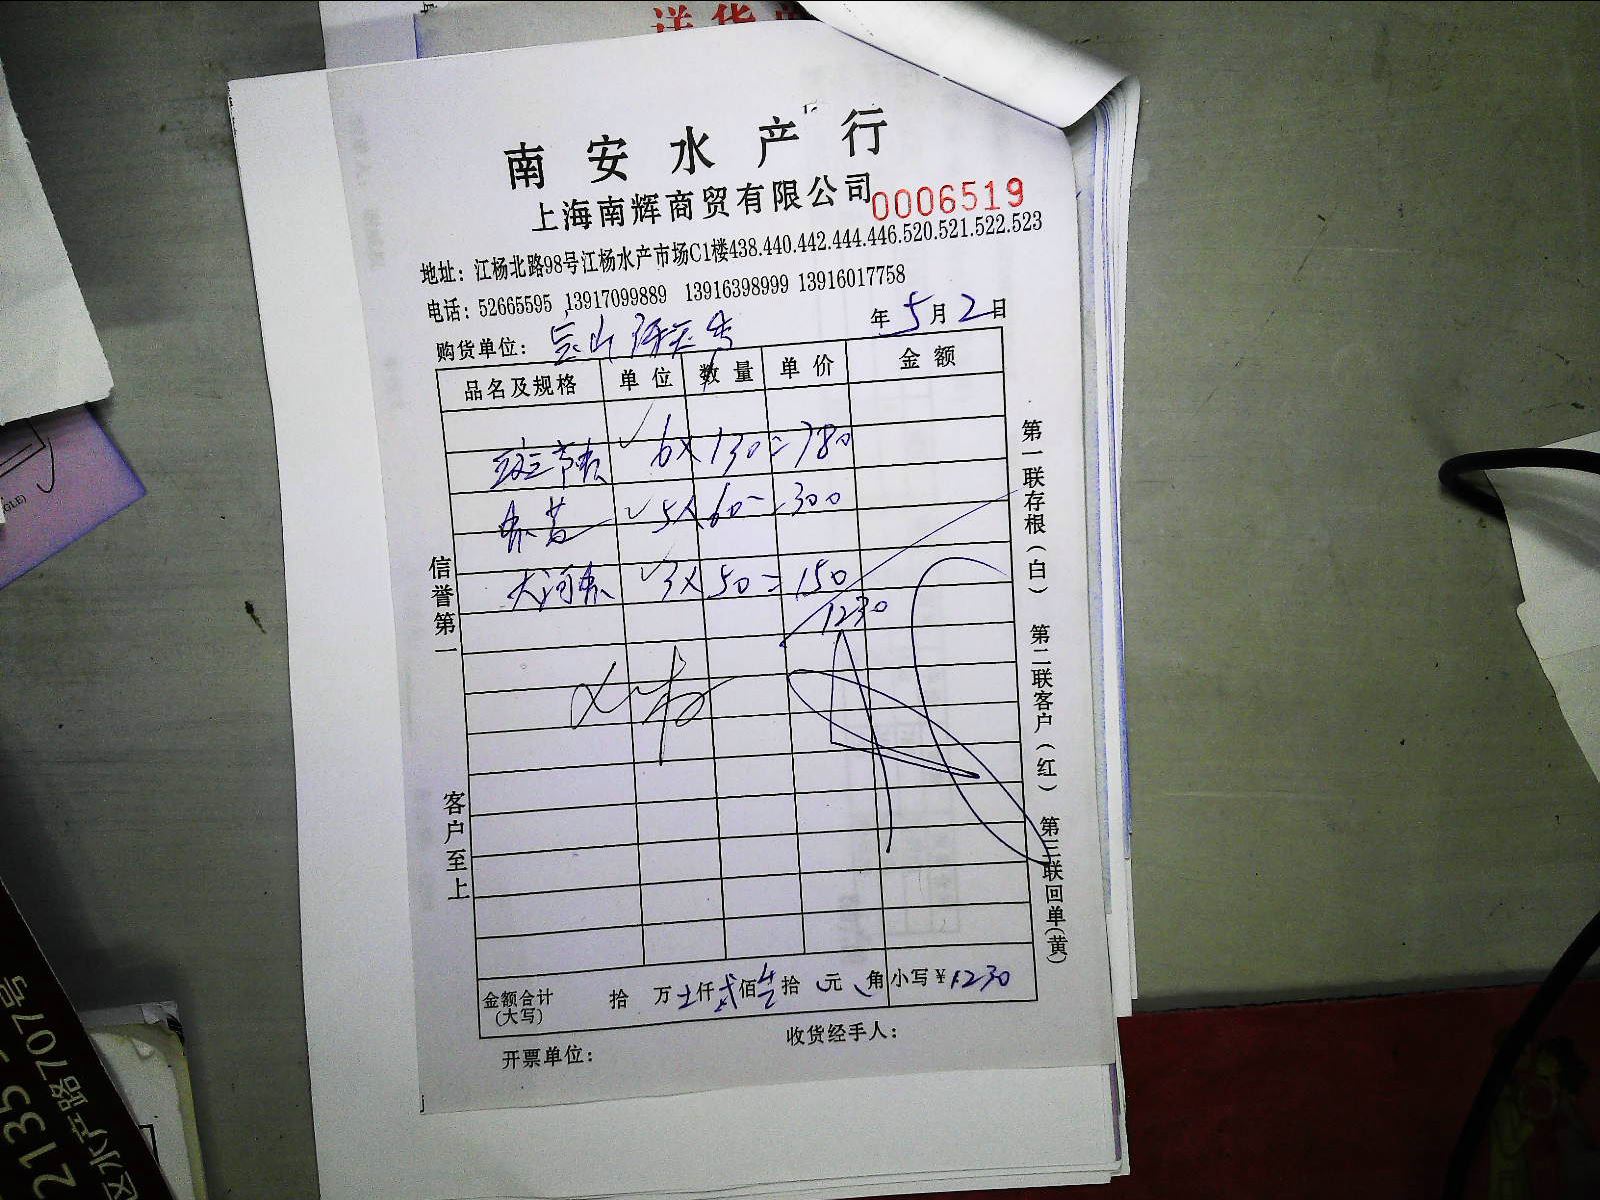 送货
南安水产行
上海南辉商贸有限公司 0006519
地址：江杨北路98号江杨水产市场C1楼438.440.442.444.446.520.521.522.523
电话：52665595 13917099889 13916398999 13916017758
年5月2日
购货单位：
品名及规格 单位 数量 单价 金额
6×130=780
5×60=300
大河虾 3×50=150
1230
金额合计(大写) 拾 万 仟 贰 佰 拾 元 角 小写￥1230
开票单位：
收货经手人：
信誉第一 客户至上
第一联存根(白) 第二联客户(红) 第三联回单(黄)
GLE)
2135
水产路707号
区水产